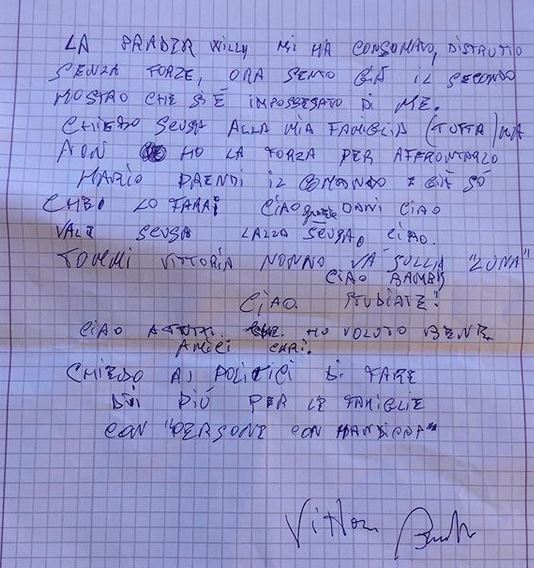 LA PRADER WILLY MI HA CONSUMATO, DISTRUTTO
SENZA FORZE, ORA SENTO GIÀ IL SECONDO
MOSTRO CHE SI È IMPOSSESSATO DI ME.
CHIEDO SCUSA ALLA MIA FAMIGLIA (TUTTA) MA
NON HO LA FORZA PER AFFRONTARLO
MARIO PRENDI IL COMANDO E GIÀ SO
CHE LO FARAI CIAO grazie DANI CIAO
VALE SCUSA LALLA SCUSA, CIAO.
TOMMI VITTORIA NONNO VÀ SULLA "LUNA"
CIAO BAMBI
CIAO. STUDIATE!
CIAO A TUTTI. HO VOLUTO BENE
AMICI CARI.
CHIEDO AI POLITICI DI FARE
DI PIÙ PER LE FAMIGLIE
CON "PERSONE CON HANDICAP"